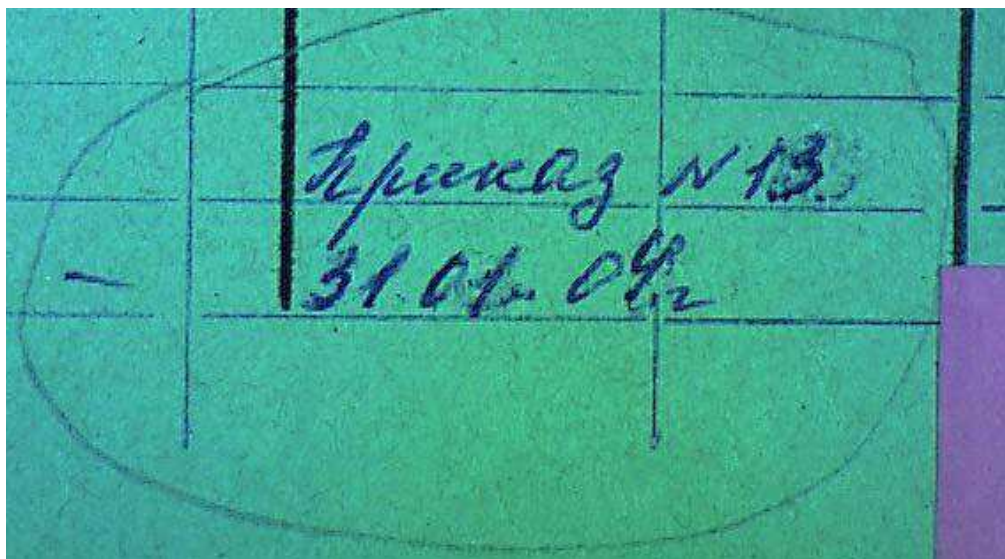 Приказ N 13.
31.01. 04г